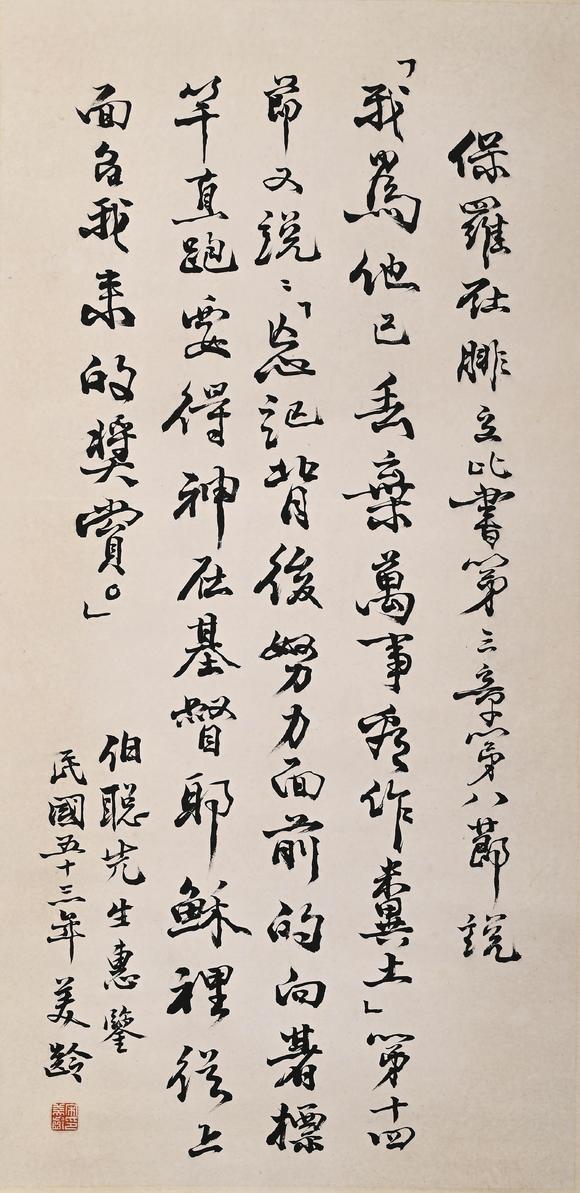 保羅在腓立比書第三章第八節說
「我爲他已丟棄萬事看作糞土」第十四
節又說：「忘記背後努力面前的向著標
竿直跑要得神在基督耶穌裡從上
面召我來的獎賞。」
伯聰先生惠鑒
民國五十三年 美齡